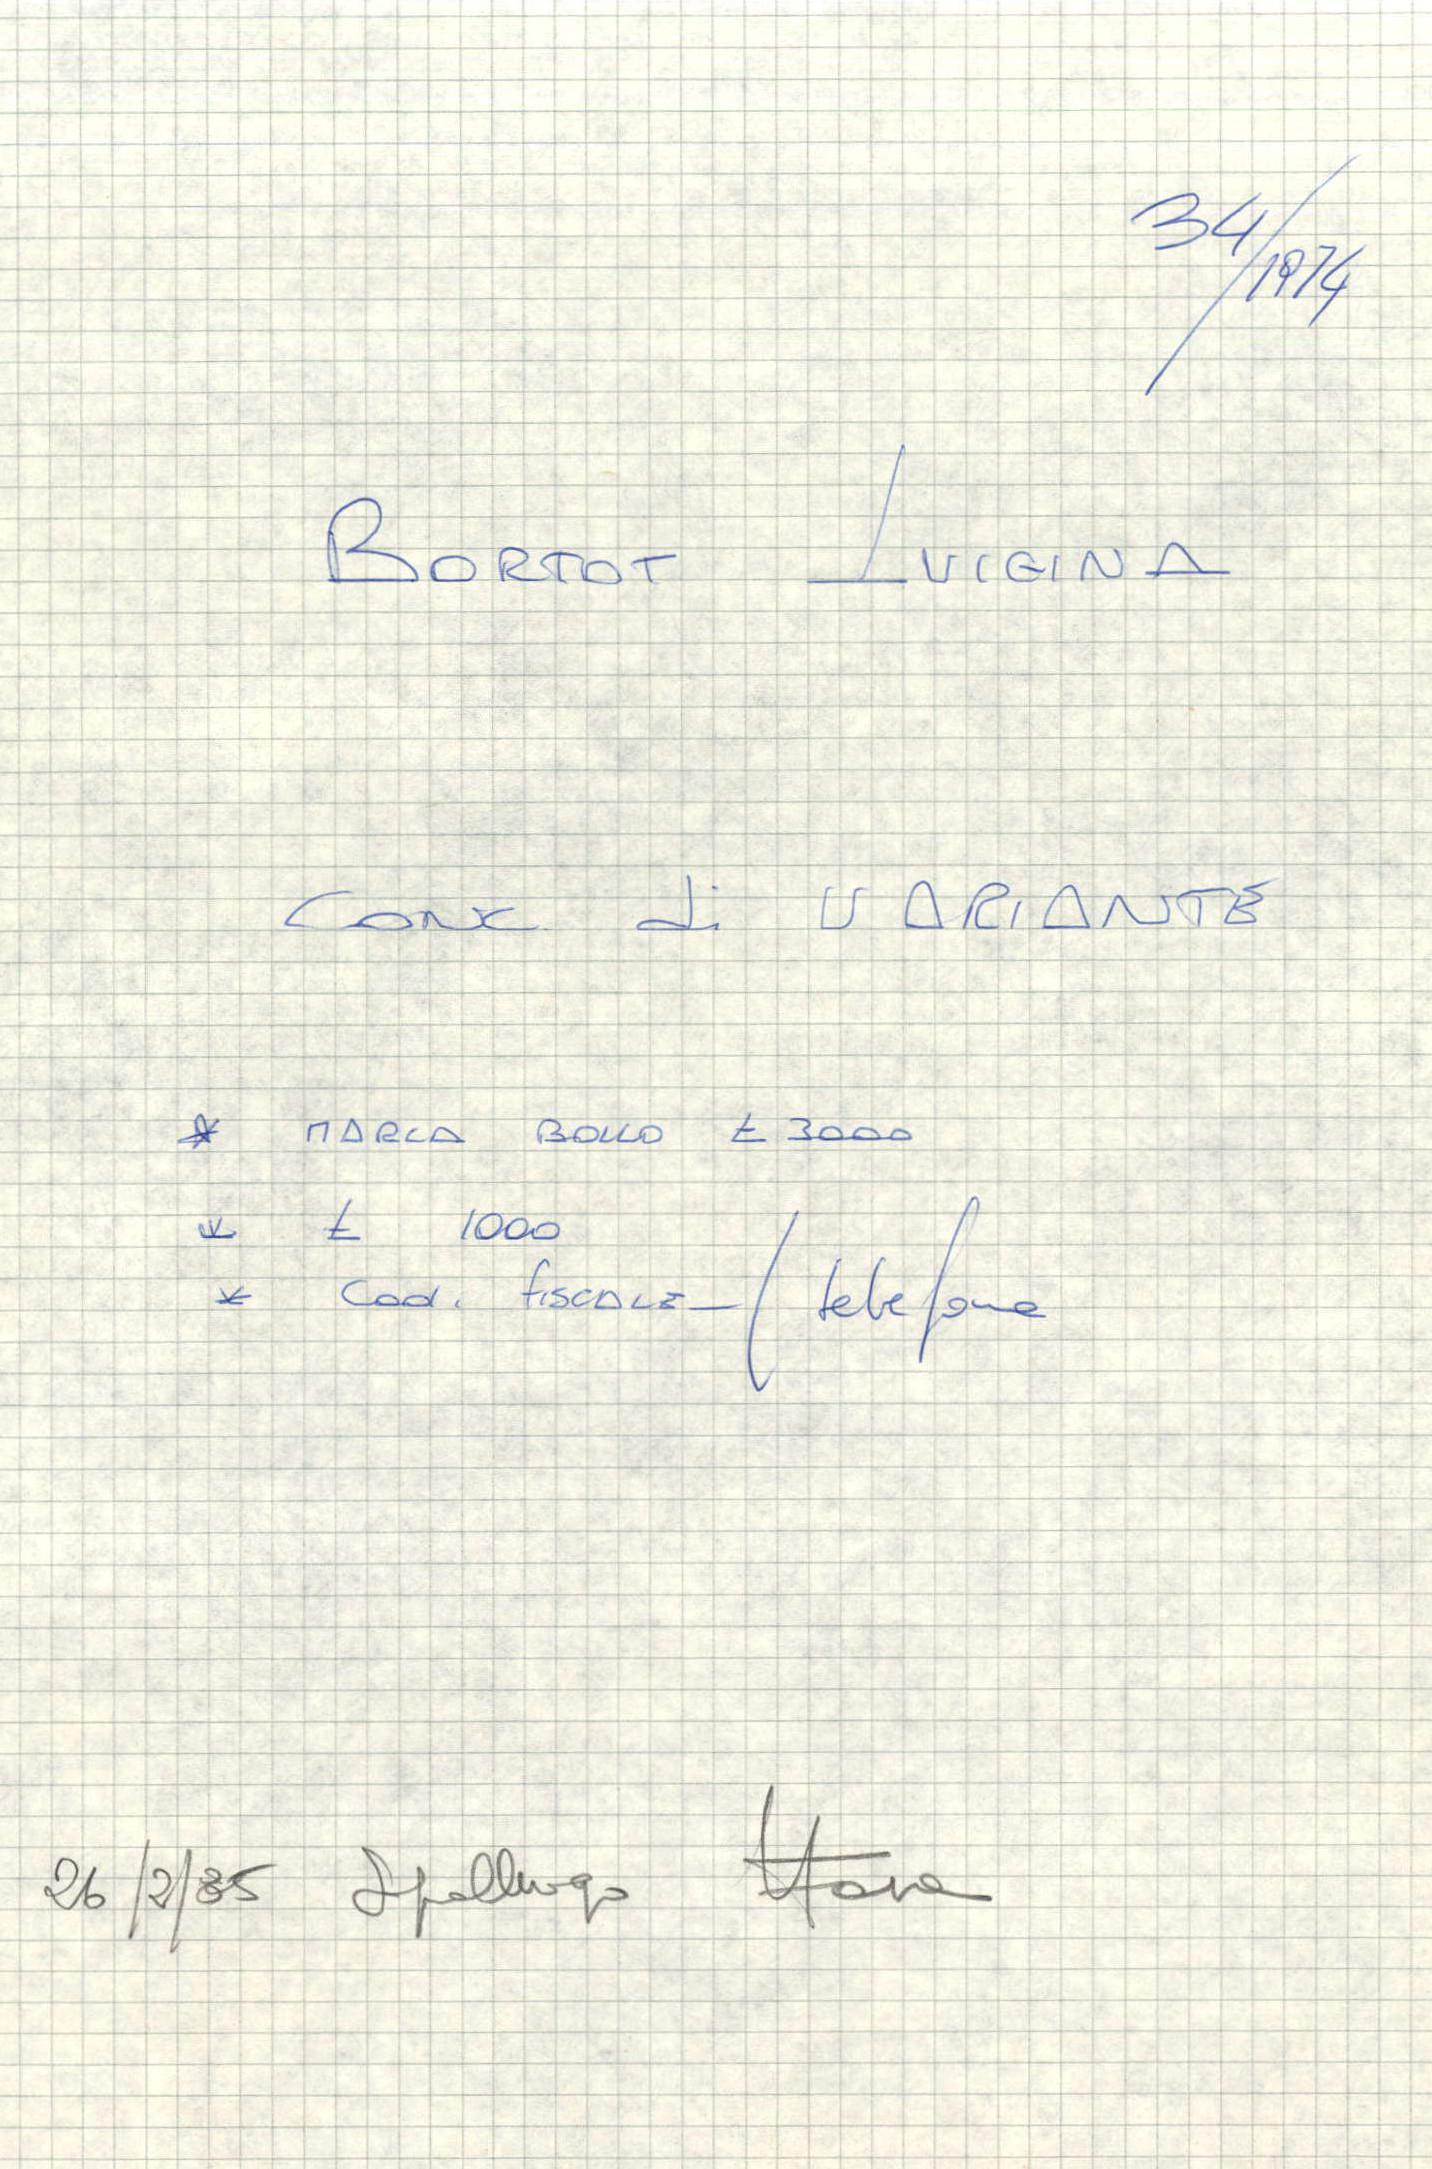 34/1974
BORTOT LUIGINA
CONC di VARIANTE
* MARCA BOLLO £ 3000
* £ 1000
* Cod. fiscale - / telefono
26/2/85